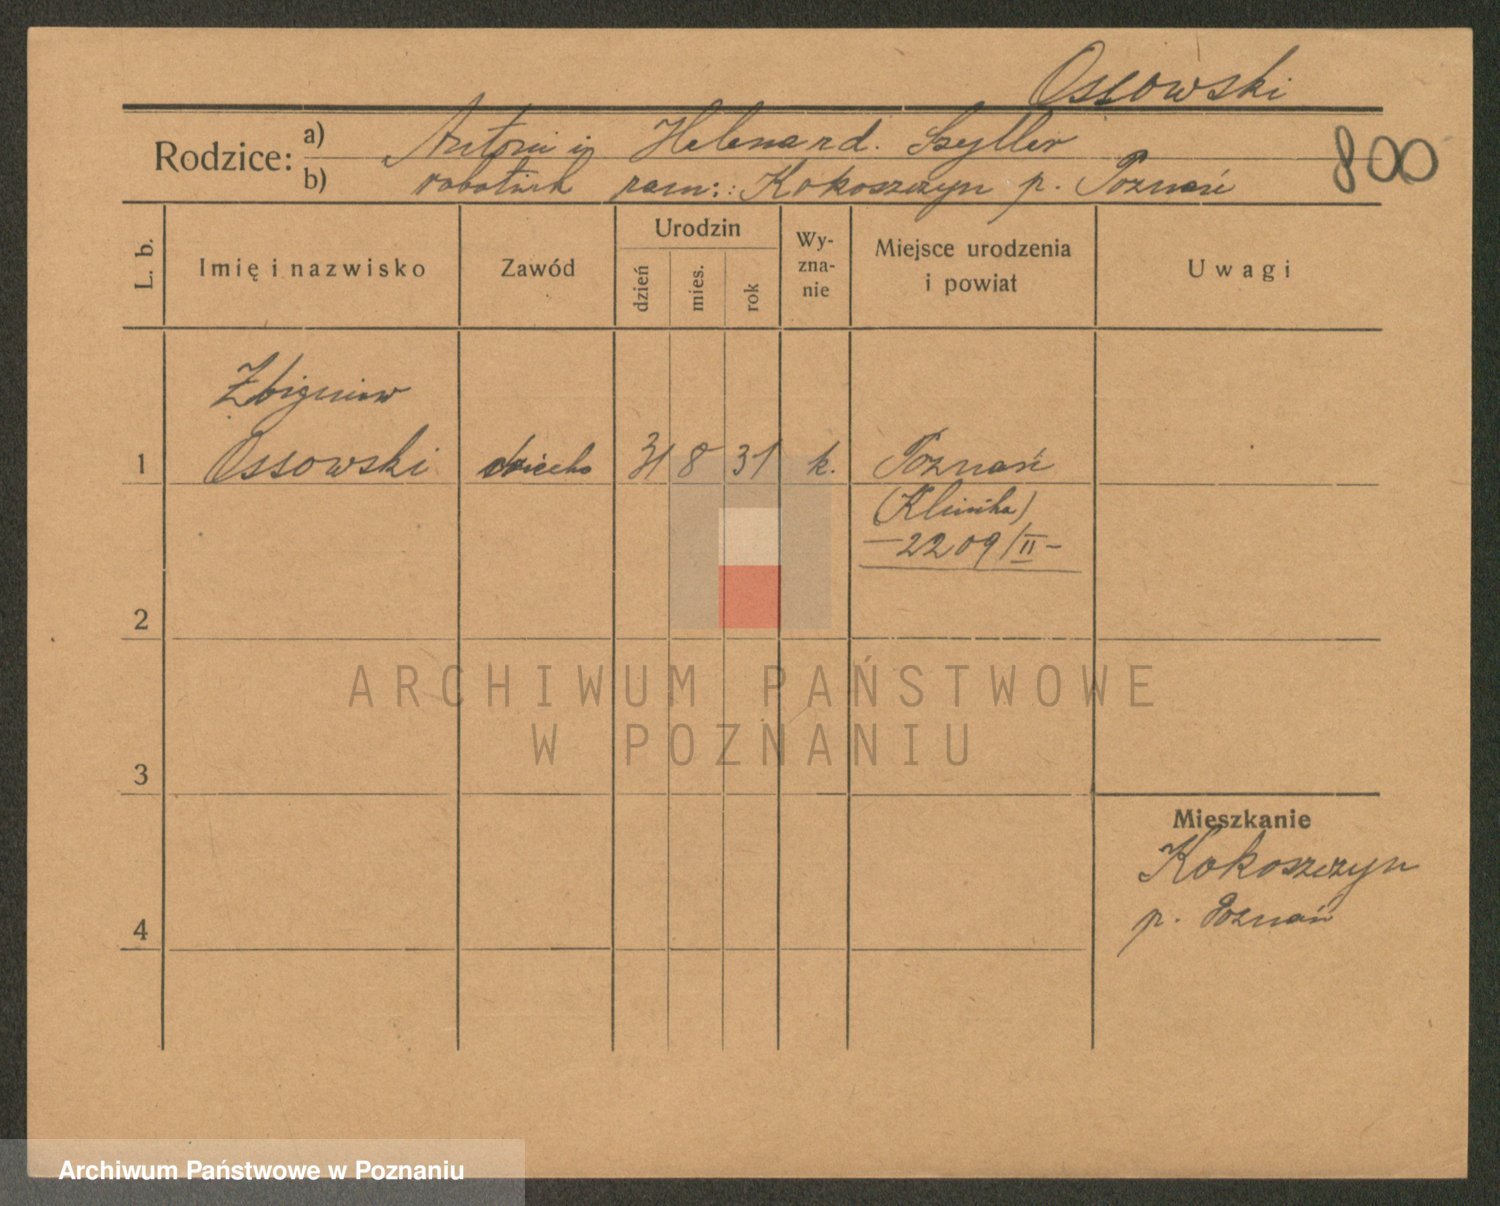 Ossowski
Rodzice: a) Antoni i Helena rd. Szyller
b) robotnik zam: Kokoszczyn p. Poznań
800
L. b. Imię i nazwisko Zawód Urodzin dzień mies. rok Wy-zna-nie Miejsce urodzenia i powiat Uwagi
Zbigniew
1 Ossowski dziecko 31 8 31 k. Poznań
(Klinika)
—2209/II—
2
3
Mieszkanie
Kokoszczyn
4 p. Poznań
ARCHIWUM PAŃSTWOWE
W POZNANIU
Archiwum Państwowe w Poznaniu